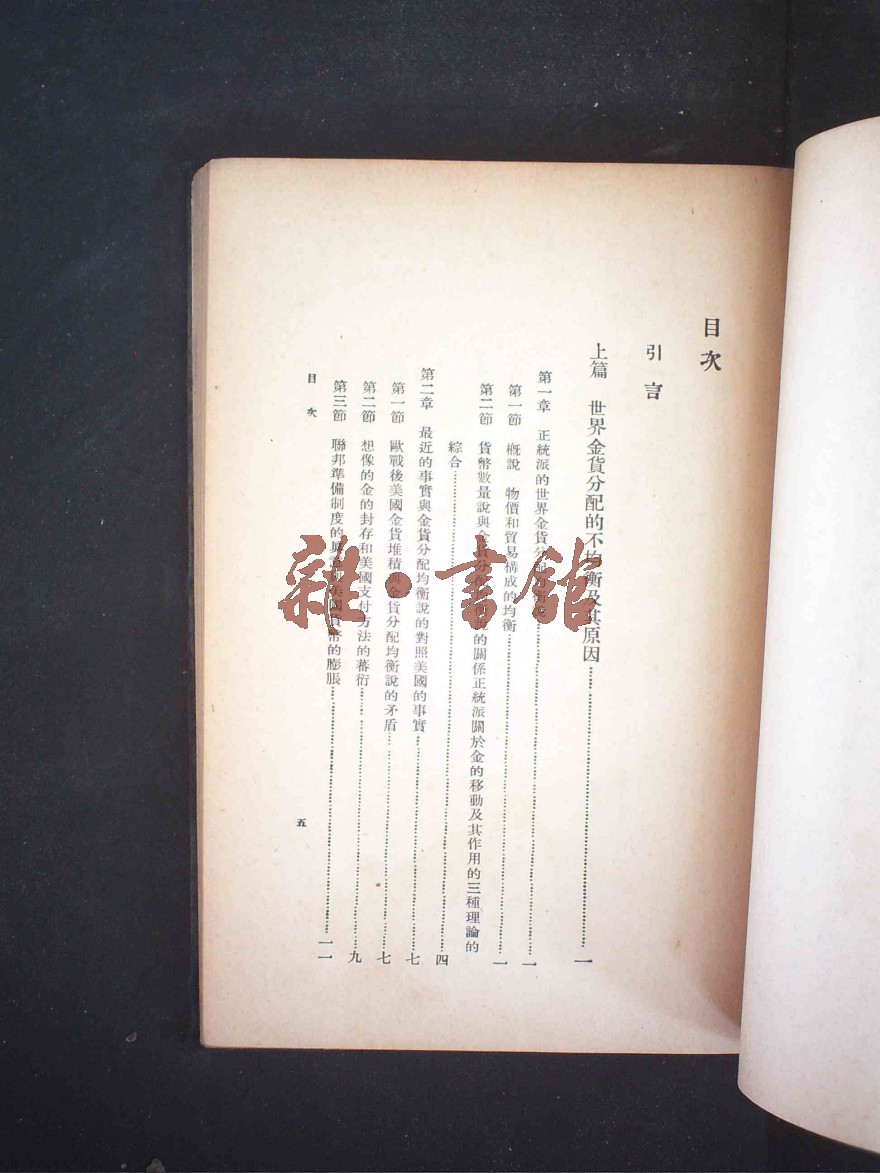 目次
引言
上篇 世界金貨分配的不均衡及其原因……一
第一章 正統派的世界金貨分配……一
第一節 概說 物價和貿易構成的均衡……一
第二節 貨幣數量說與金貨分配均衡說的關係正統派關於金的移動及其作用的三種理論的
綜合……四
第二章 最近的事實與金貨分配均衡說的對照美國的事實……七
第一節 歐戰後美國金貨堆積與金貨分配均衡說的矛盾……七
第二節 想像的金的封存和美國支付方法的蕃衍……九
第三節 聯邦準備制度的與美國貨幣的膨脹……一一
目次
五
雜·書館